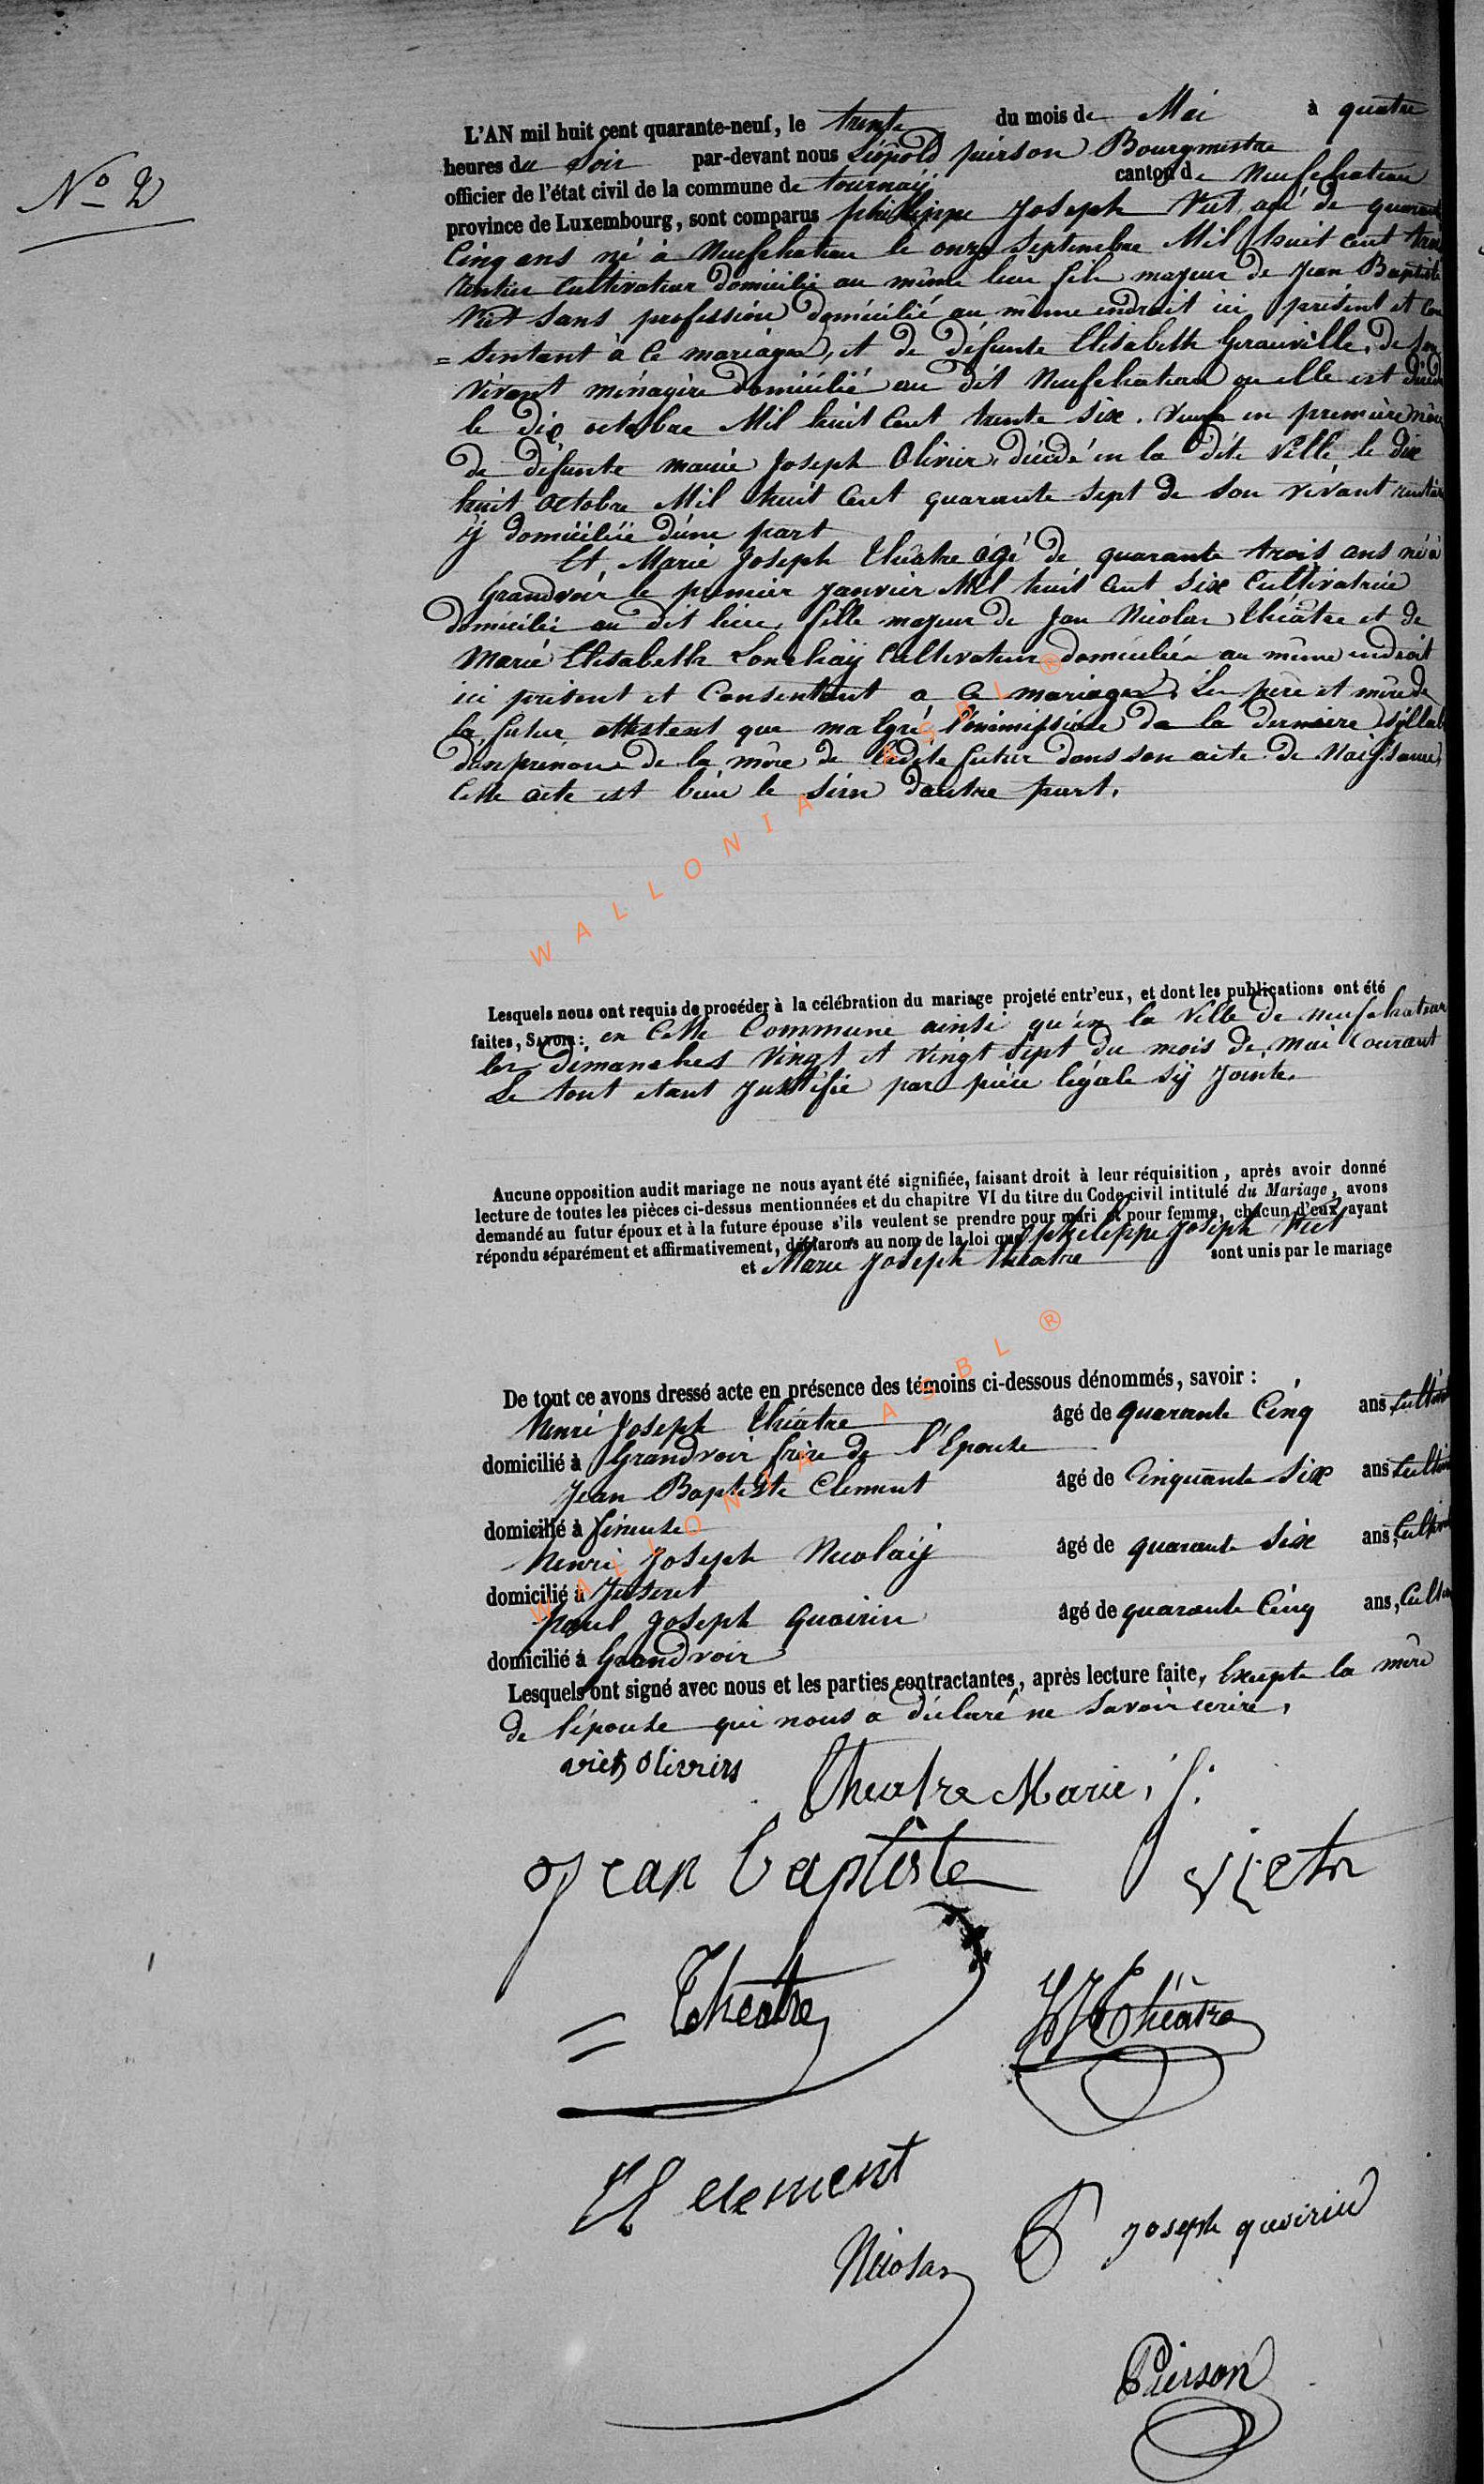 N° 2
L'AN mil huit cent quarante-neuf, le trente du mois de Mai à quatre
heures du soir par-devant nous Léopold pierson Bourgmestre
officier de l'état civil de la commune de tournaÿ canton de Neufchateau
province de Luxembourg, sont comparus philippe Joseph Viet, agé de quarante
Cinq ans né à Neufchateau le onze Septembre Mil huit cent trois
rentier Cultivateur domicilié au même lieu fils majeur de Jean Baptiste
Viet sans profession domicilié au même endroit ici présent et con
= sentant à ce mariage, et de défunte Elisabeth Gerauville, de son
vivant ménagère domicilié au dit Neufchateau ou elle est décédé
le dix octobre Mil huit Cent trente six. Veuf en première nôce
de défunte marie Joseph Olivier, décédé en la dite Ville le dix
huit octobre Mil huit Cent quarante sept de son vivant rentière
ÿ domiciliée d'une part
Et Marie Joseph théâtre âgé de quarante trois ans né à
Grandvoir le premier Janvier Mil huit Cent Six Cultivatrice
domicilié au dit lieu, fille majeur de Jean Nicolas théâtre et de
Marie Elisabeth Lonchaÿ Cultivateurs domiciliés au même endroit
ici présent et Consentant a ce mariage, Les père et mère de
la future attestent que malgré l'ommission de la dernière sÿllabe
du prenom de la mère de ladite futur dans son acte de Naissance,
Cette acte est bien le sien d'autre part.
Lesquels nous ont requis de procéder à la célébration du mariage projeté entr'eux, et dont les publications ont été
faites, SAVOIR: en Cette Commune ainsi qu'en la Ville de Neufchateau
les dimanches Vingt et Vingt Sept du mois de mai Courant
Le tout etant Justifié par pièce légale sÿ Jointe.
Aucune opposition audit mariage ne nous ayant été signifiée, faisant droit à leur réquisition, après avoir donné
lecture de toutes les pièces ci-dessus mentionnées et du chapitre VI du titre du Code civil intitulé du Mariage, avons
demandé au futur époux et à la future épouse s'ils veulent se prendre pour mari et pour femme, chacun d'eux ayant
répondu séparément et affirmativement, déclarons au nom de la loi que philippe Joseph Viet
et Marie Joseph théatre sont unis par le mariage
De tout ce avons dressé acte en présence des témoins ci-dessous dénommés, savoir :
Henri Joseph théatre âgé de quarante Cinq ans, Cultiv
domicilié à Grandvoir frère de l'Epouse
Jean Baptiste Clement âgé de Cinquante Six ans, Cultiv
domicilié à
Henri Joseph Nicolaÿ âgé de quarante Six ans, Cultiv
domicilié à Juseret
Paul Joseph Quoirin âgé de quarante Cinq ans, Cultiv
domicilié à Grandvoir
Lesquels ont signé avec nous et les parties contractantes, après lecture faite, Excepte la mère
de l'épouse qui nous a déclaré ne savoir écrire.
viet olivirs Theatre Marie, J:
Jean baptiste viet
= Theatre HJ Théatre
Clement
Nicolay P Joseph quoirin
Pierson
WALLONIA ASBL ®
WALLONIA ASBL ®